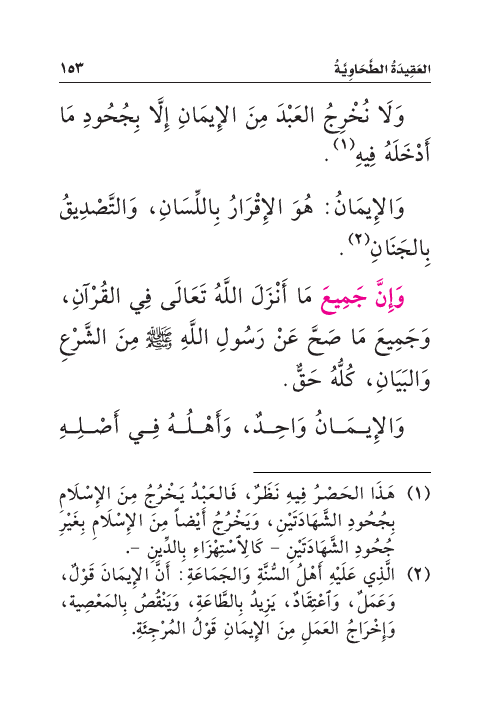 العَقِيدَةُ الطَّحَاوِيَّةُ ١٥٣
وَلَا نُخْرِجُ العَبْدَ مِنَ الإِيمَانِ إِلَّا بِجُحُودِ مَا
أَدْخَلَهُ فِيهِ(١).
وَالإِيمَانُ: هُوَ الإِقْرَارُ بِاللِّسَانِ، وَالتَّصْدِيقُ
بِالجَنَانِ(٢).
وَإِنَّ جَمِيعَ مَا أَنْزَلَ اللَّهُ تَعَالَى فِي القُرْآنِ،
وَجَمِيعَ مَا صَحَّ عَنْ رَسُولِ اللَّهِ ﷺ مِنَ الشَّرْعِ
وَالبَيَانِ، كُلُّهُ حَقٌّ.
وَالإِيـمَـانُ وَاحِـدٌ، وَأَهْـلُـهُ فِـي أَصْـلِـهِ
(١) هَذَا الحَصْرُ فِيهِ نَظَرٌ، فَالعَبْدُ يَخْرُجُ مِنَ الإِسْلَامِ
بِجُحُودِ الشَّهَادَتَيْنِ، وَيَخْرُجُ أَيْضاً مِنَ الإِسْلَامِ بِغَيْرِ
جُحُودِ الشَّهَادَتَيْنِ - كَالِٱسْتِهْزَاءِ بِالدِّينِ -.
(٢) الَّذِي عَلَيْهِ أَهْلُ السُّنَّةِ وَالجَمَاعَةِ: أَنَّ الإِيمَانَ قَوْلٌ،
وَعَمَلٌ، وَٱعْتِقَادٌ، يَزِيدُ بِالطَّاعَةِ، وَيَنْقُصُ بِالمَعْصِيَةِ،
وَإِخْرَاجُ العَمَلِ مِنَ الإِيمَانِ قَوْلُ المُرْجِئَةِ.